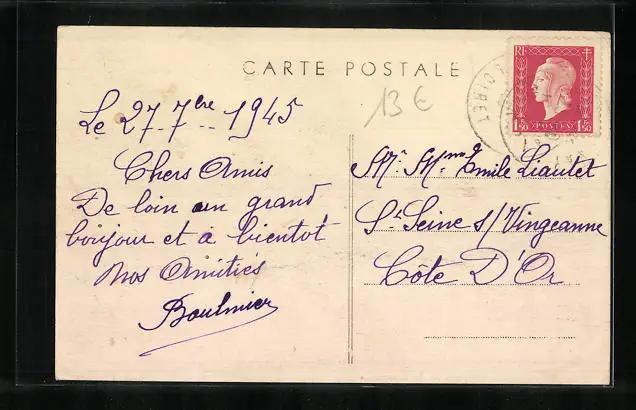 CARTE POSTALE
13 €
RF
1F50 POSTES 1F50
LOIRET
Le 27-7bre 1945
Chers Amis
De loin un grand
bonjour et à bientôt
Nos Amitiés
Boulmier
Mr. Mme Emile Liautet
St. Seine s/Vingeanne
Côte D'Or